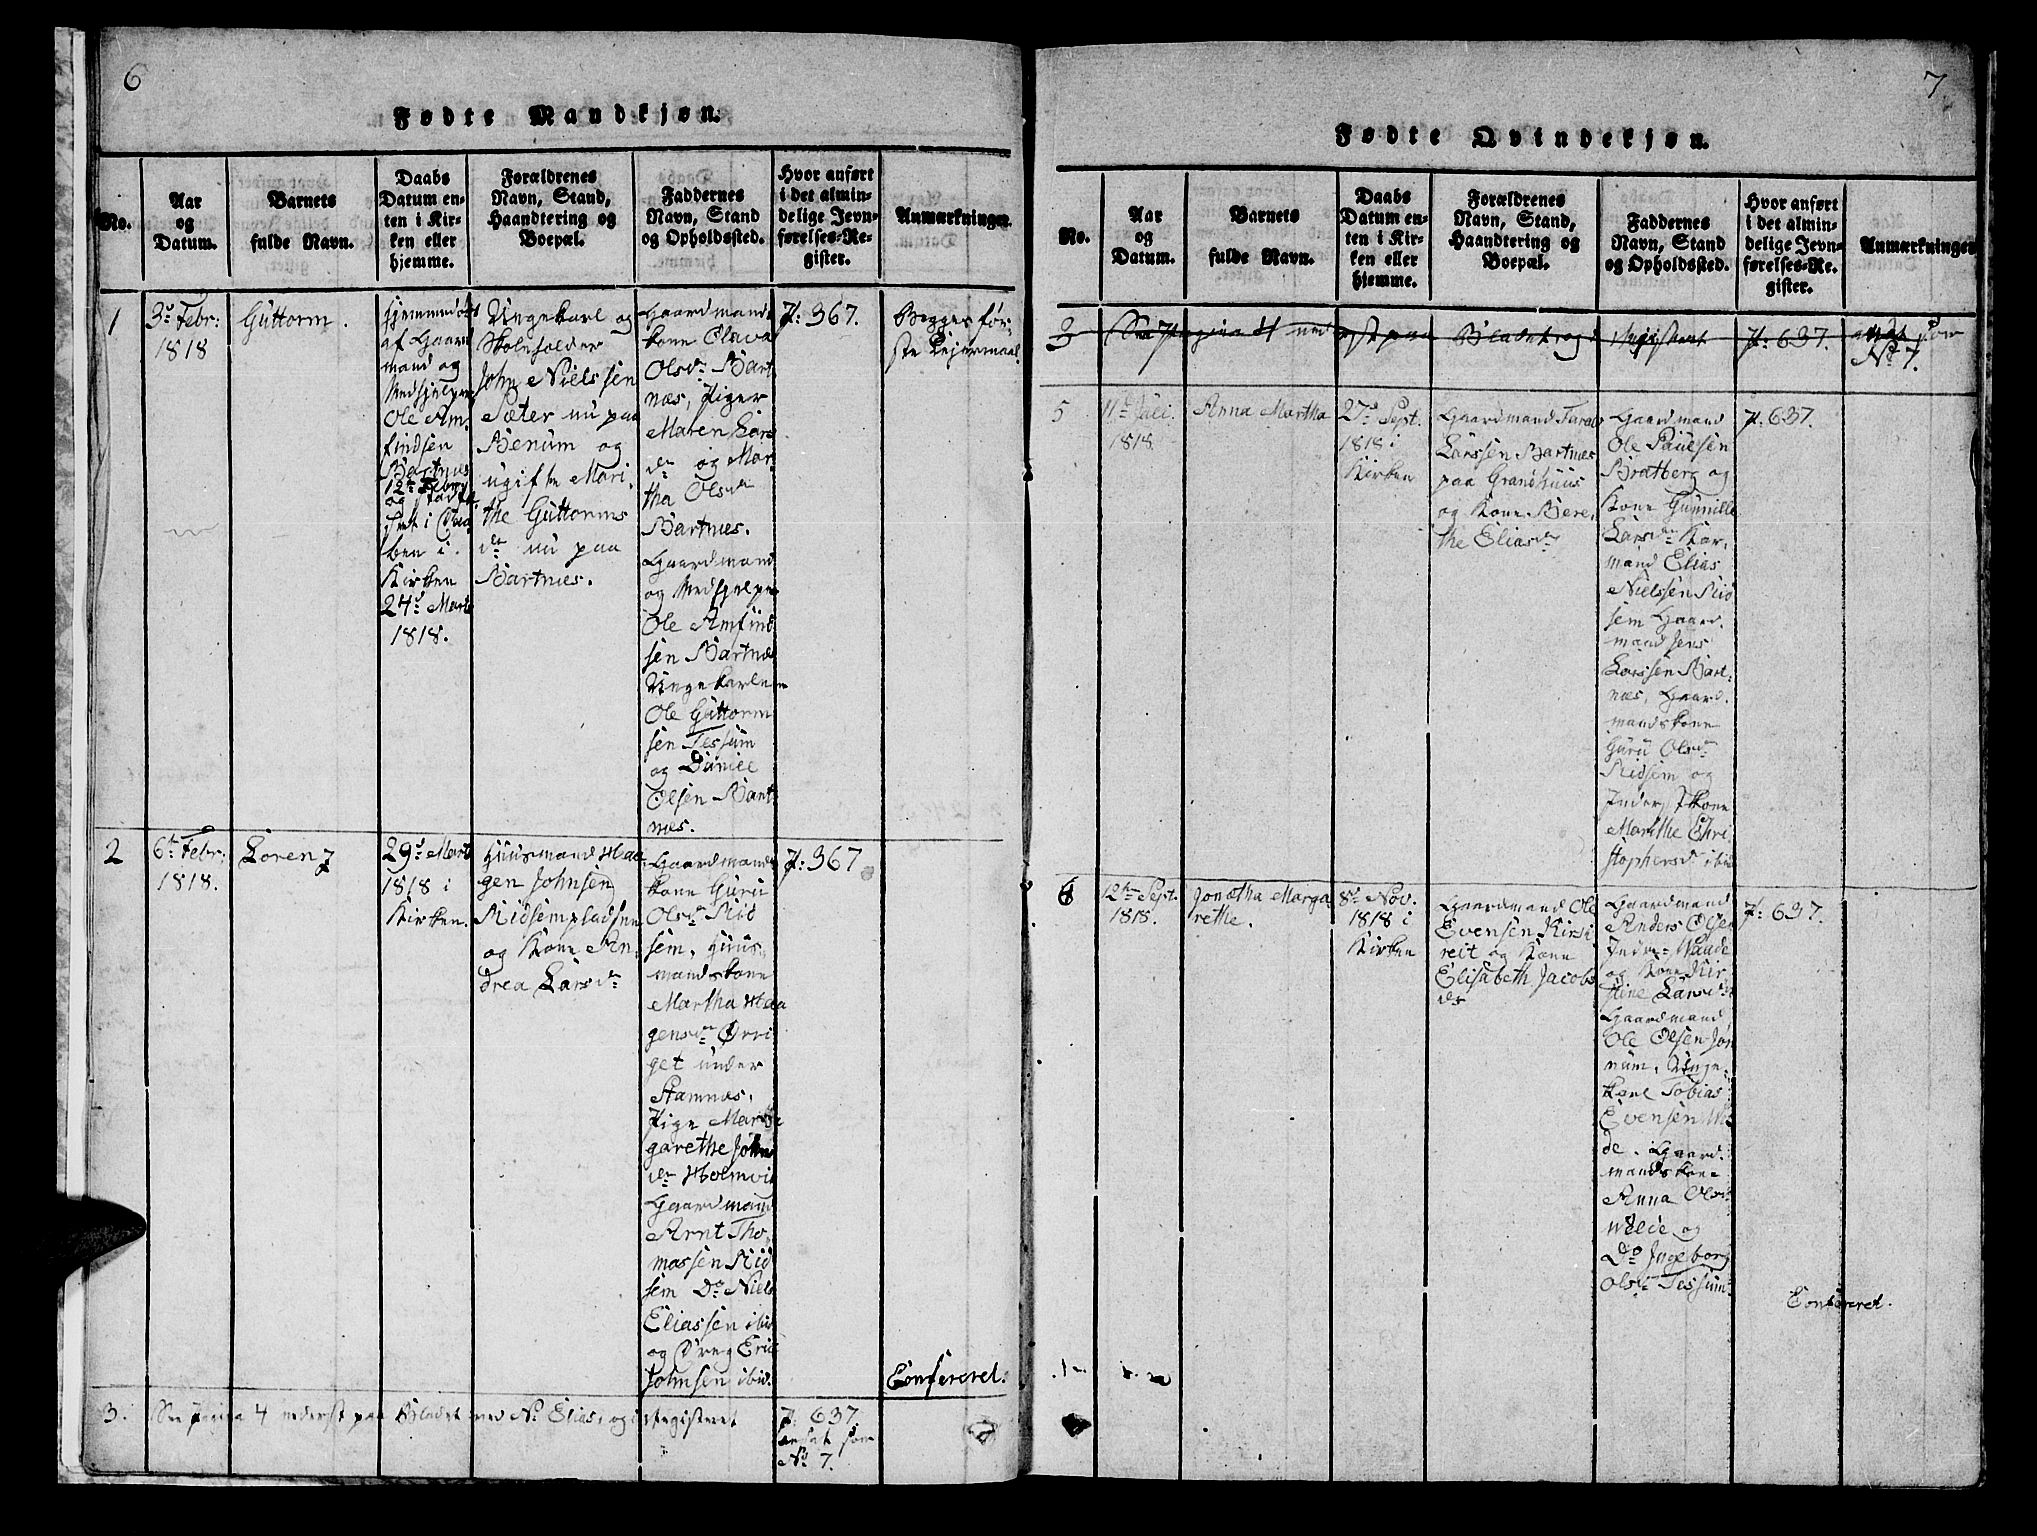 6
Fødte Mandkjøn.
No.
Aar
og
Datum.
Barnets
fulde Navn.
Daabs
Datum en-
ten i Kir-
ken eller
hjemme.
Forældrenes
Navn, Stand,
Haandtering og
Boepæl.
Faddernes
Navn, Stand
og Opholdssted.
Hvor anført
i det almin-
delige Jevn-
førelses-Re-
gister.
Anmærkninger
1
3de Febr:
1818
Guttorm.
Hjemmedøbt
af Gaard
mand og
Medhjelper
Ole Am
findsen
Bartnes
12te Febr
og
i Daa
ben i
Kirken
24de Marts
1818.
Ungekarl og
Skoleholder
John Nielssen
Sæter nu paa
Benum og
ugifte Mari
the Guttorms
dr nu paa
Bartnes.
Gaardmands
kone Olava
Olsdr Bart
næs, Piger
Maren Lars
dr og Mar
tha Olsdr
Bartnæs.
Gaardmand
og Medhjelper
Ole Amfind
sen Bartnæs
Ungekarlene
Ole Guttorm
sen Tessum
og Daniel
Olsen Bart
næs.
P: 367.
Begges før-
ste Lejermaal
2
6te Febr:
1818.
Lorentz
29de Marts
1818 i
Kirken.
Huusmand Haa
gen Johnsen
Midsempladsen
og Kone An
drea Larsdr
Gaardmands
kone Guru
Olsdr Mid
sem, Huus-
mandskone
Martha Haa
gensdr Ørri
get under
Stamnæs,
Pige Mar
garethe Johns
dr Holmvi
Gaardmand
Arnt Tho-
massen Mid
sem Do Niels
Eliassen ibid
og Dreng Eric
Johnsen ibid.
P: 367
Confereret.
3.
See Pagina 4 nederst paa Bladet med No Elias, og i Registeret
P: 637.
ansat som
No 7.
7
Fødte Qvindekjøn.
No.
Aar
og
Datum.
Barnets
fulde Navn.
Daabs
Datum en-
ten i Kir-
ken eller
hjemme.
Forældrenes
Navn, Stand,
Haandtering og
Boepæl.
Faddernes
Navn, Stand
og Opholdssted.
Hvor anført
i det almin-
delige Jevn-
førelses-Re-
gister.
Anmærkninger
3
See Pagina 4 nederst paa Bladet og i Registeret P: 637. ansat som
No 7.
5
11te Juli
1818.
Anna Martha
27de Sept.
1818 i
Kirken
Gaardmand
Larssen Bartnes
paa Grandhuus
og Kone Bere,
the Eliasdr
Gaardmand
Ole Paulsen
Bratberg og
Kone Gunnille
Larsdr
mand Elias
Nielssen Mid
sem Gaard.
mand Jens
Larssen Bart
næs, Gaard.
mandskone
Guru Olsdr
Midsem og
Kone
Marithe Chri
stophersdr ibid
P: 637.
6
12te Sept.
1818.
Jonetha Marga
rethe.
8de Nov.
1818 i
Kirken
Gaardmand Ole
Evensen Kirsi
reit og Kone
Elisabeth Jacobs
dr
Gaardmand
Anders Olsen
Indre Vaade
og Kone Kir
stine Larsdr
Gaardmand
Ole Olsen Jør
num, Unge-
karl Tobias
Evensen
de. Gaard.
mandskone
Anna Olsdr
Welde og
Do Ingeborg
Olsdr Tessum.
P: 637.
Confereret.